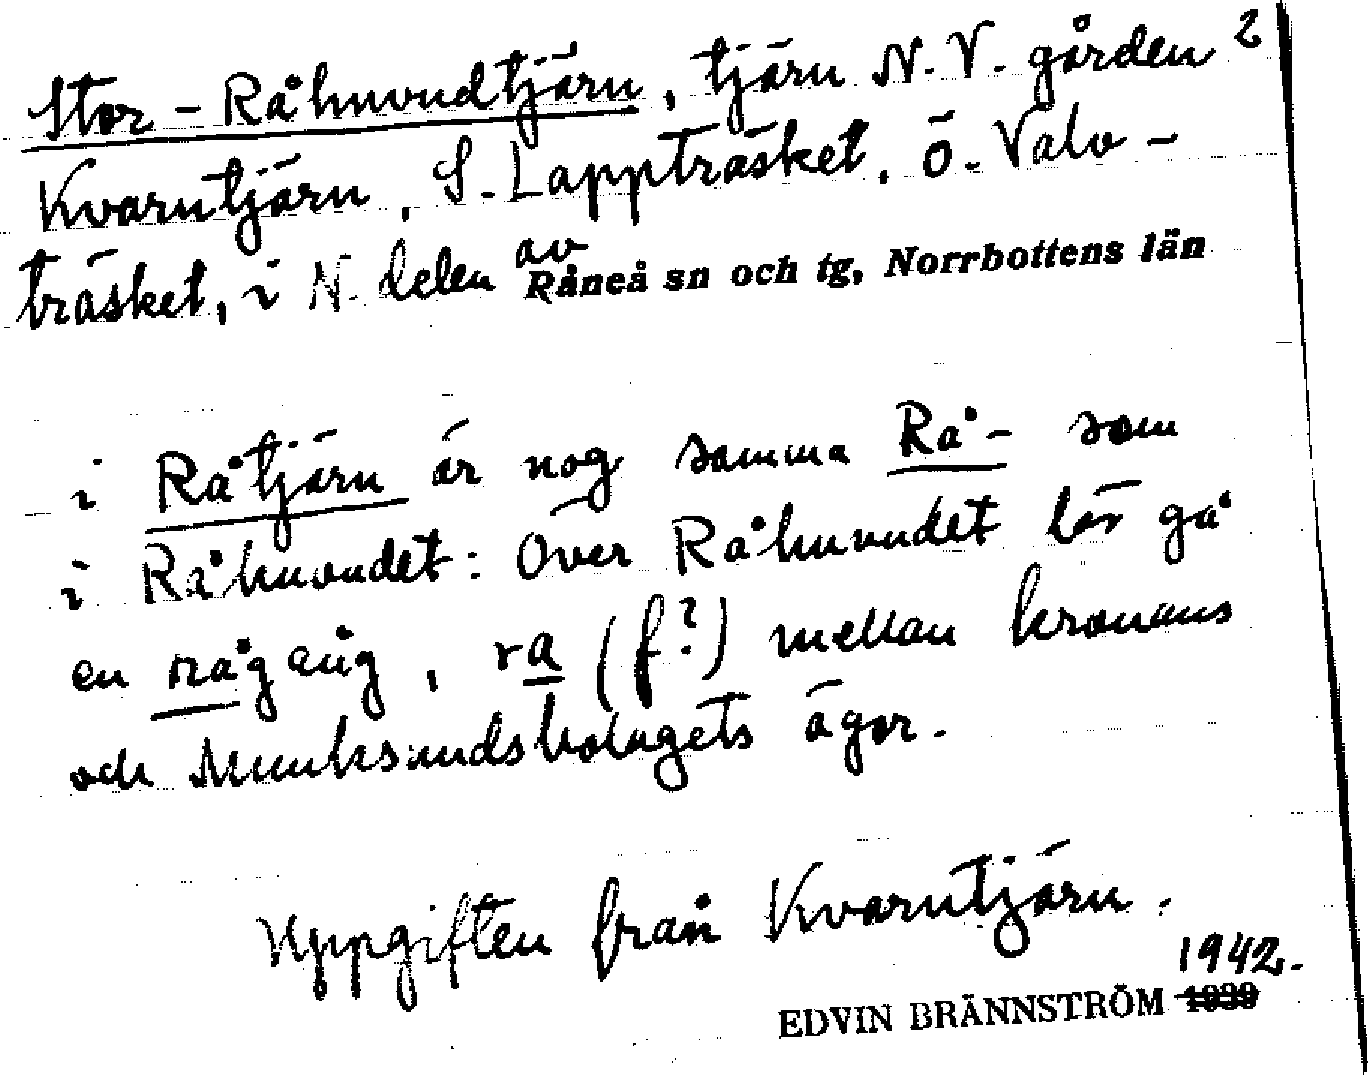 Stor-Råhuvudtjärn, tjärn N.V. gården 2
Kvarntjärn, S. Lappträsket, ö. Valv-
träsket, i N. delen av Råneå sn och tg, Norrbottens län
i Råtjärn är nog samma Rå- som
i Råhuvudet: Över Råhuvudet lär gå
en rågång, ra (f?) mellan kronans
och Munksundsbolagets ägor.
Uppgiften från Kvarntjärn.
1942.
EDVIN BRÄNNSTRÖM 1939